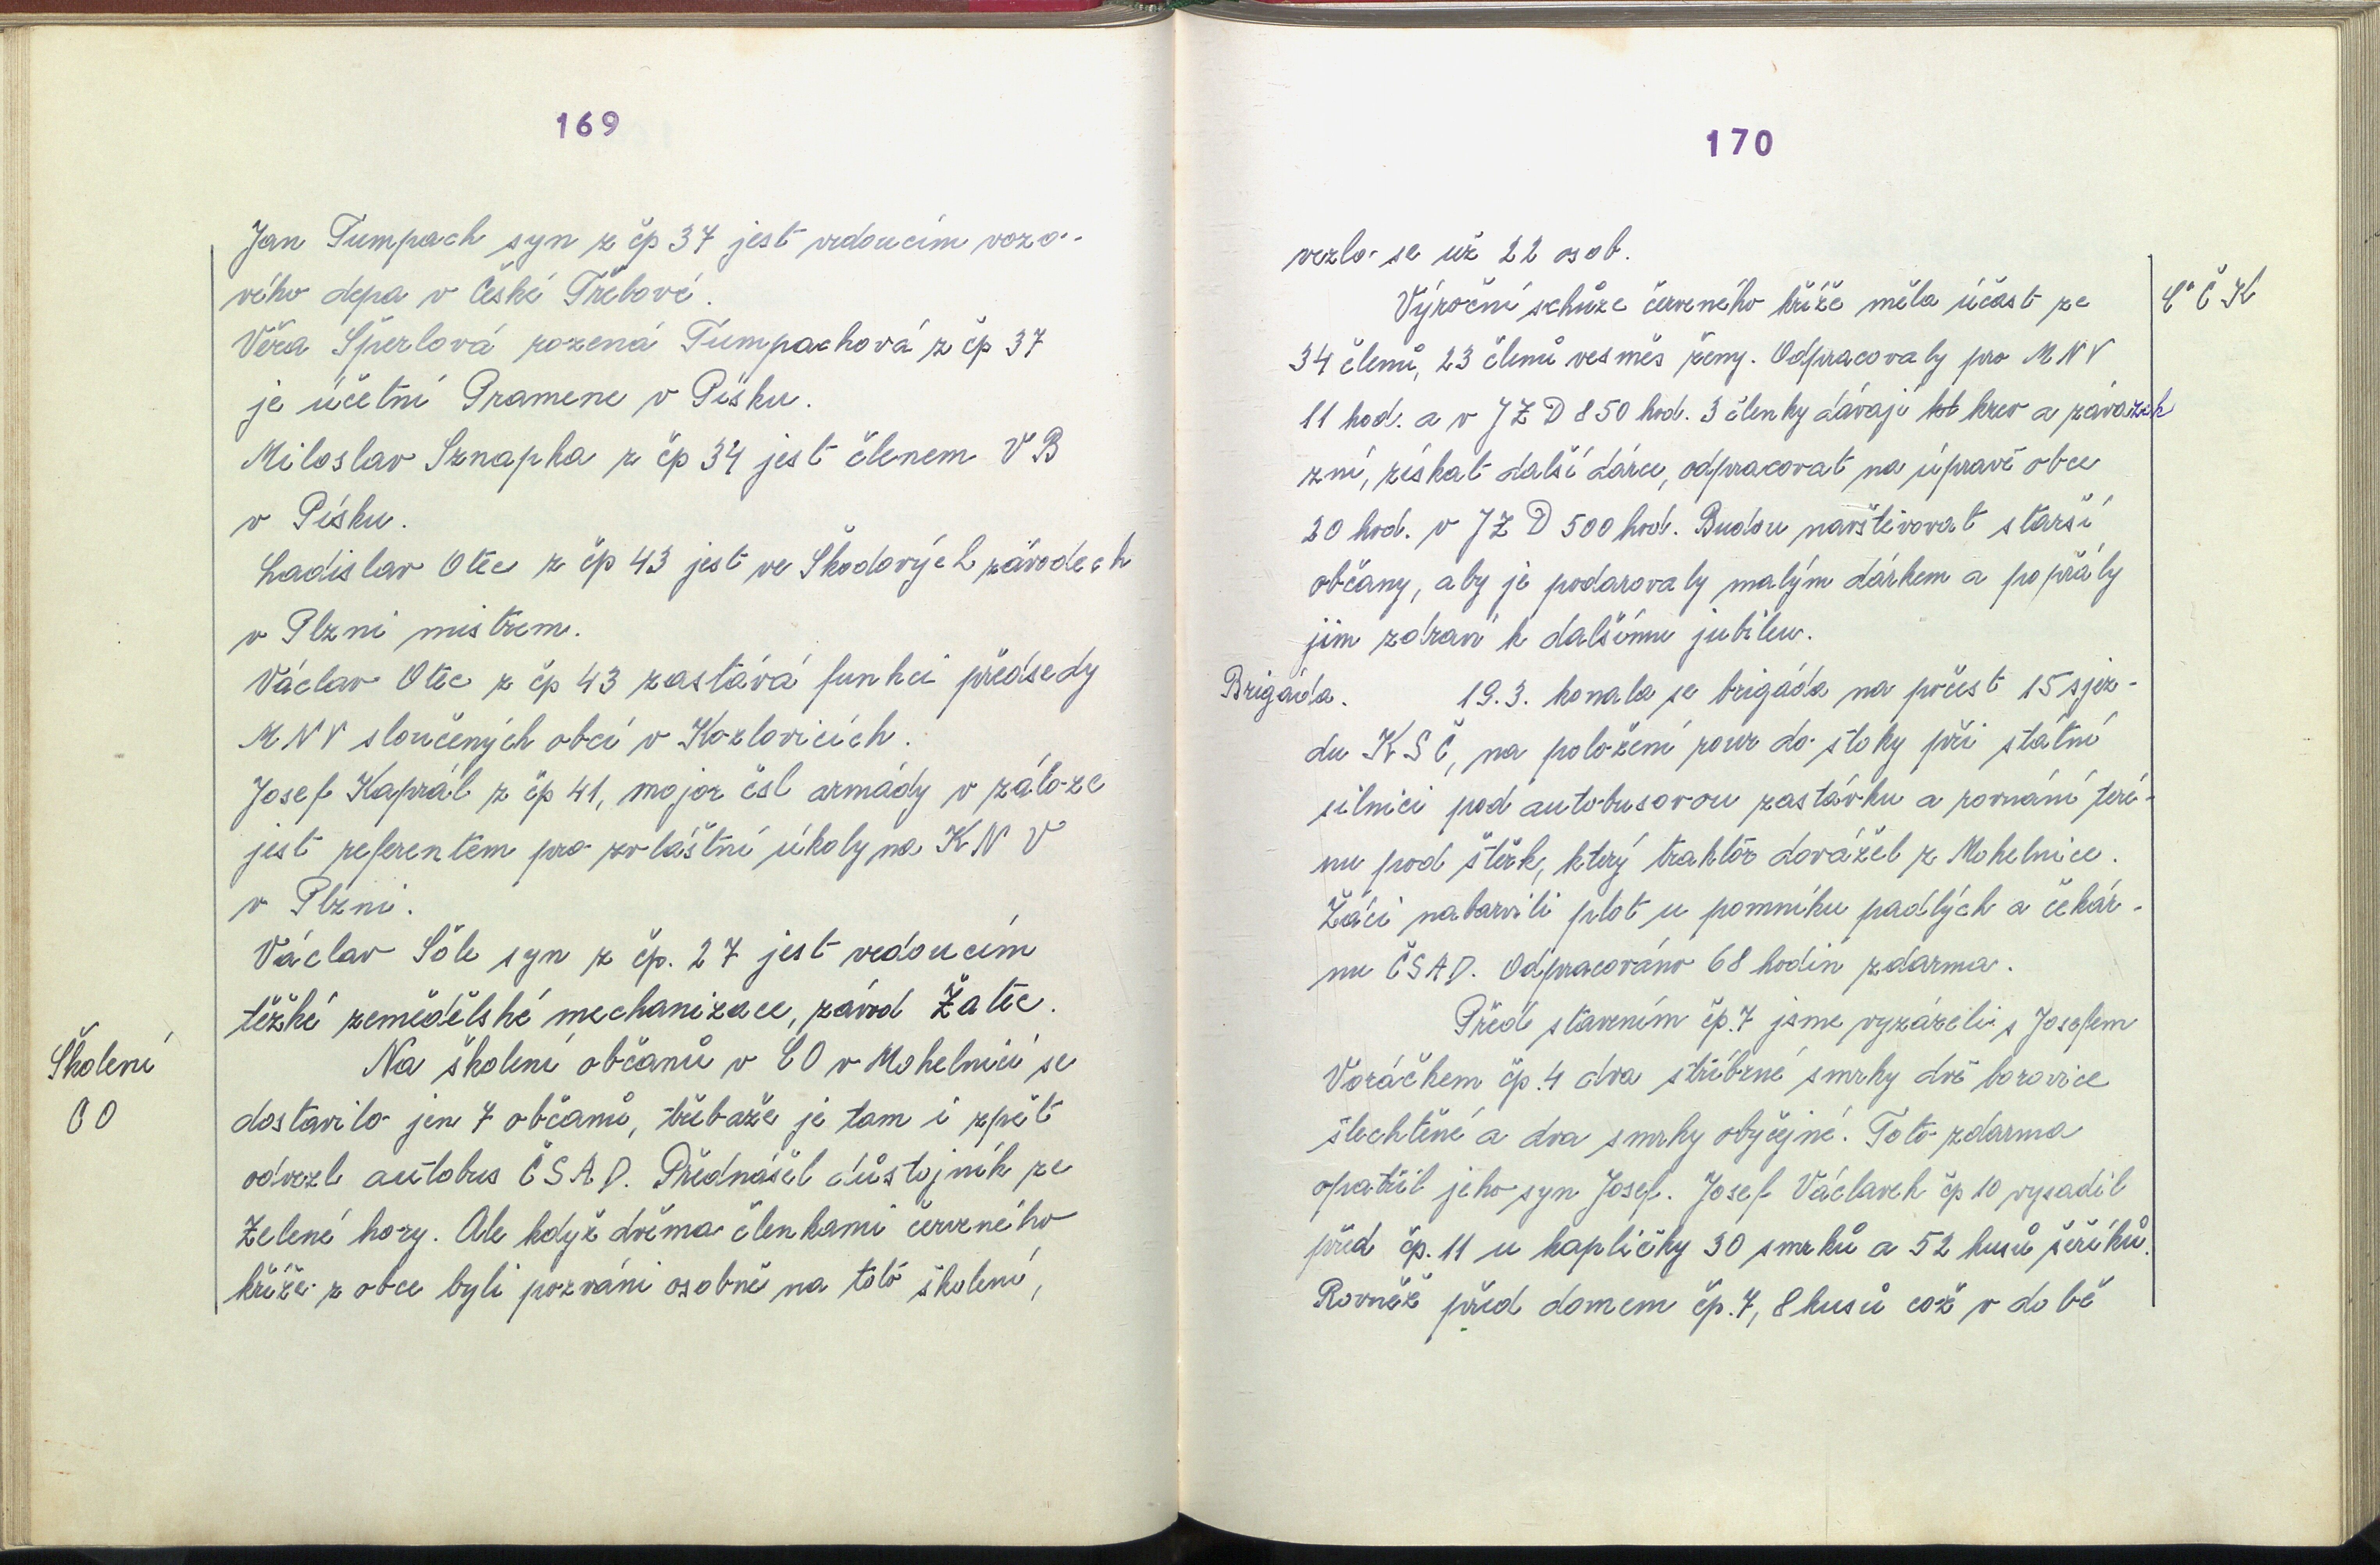 169
Jan Tumpach syn z čp 37 jest vedoucím vozo-
vého depa v České Třebové.
Věra Šperlová rozená Tumpachová z čp 37
je účetní Pramene v Písku.
Miloslav Sznapka z čp 34 jest členem VB
v Písku.
Ladislav Otec z čp 43 jest ve Škodových závodech
v Plzni mistrem.
Václav Otec z čp 43 zastává funkci předsedy
MNV sloučených obcí v Kozlovicích.
Josef Kaprál z čp 41, major čsl armády v záloze
jest referentem pro zvláštní úkoly na KNV
v Plzni.
Václav Šůle syn z čp. 27 jest vedoucím
těžké zemědělské mechanizace, závod Žatec.
Školení
CO
Na školení občanů v CO v Mohelnici se
dostavilo jen 7 občanů, třebaže je tam i zpět
odvezl autobus ČSAD. Přednášel důstojník ze
Zelené hory. Ale když dvěma členkami červeného
kříže z obce byli pozváni osobně na toto školení,
170
vezlo se už 22 osob.
ČČK
Výroční schůze červeného kříže měla účast ze
34 členů, 23 členů vesměs ženy. Odpracovaly pro MNV
11 hod. a v JZD 850 hod. 3 členky dávají krev a závazek
zní, získat další dárce, odpracovat na úpravě obce
20 hod. v JZD 500 hod. Budou navštěvovat starší
občany, aby je podarovaly malým dárkem a popřály
jim zdraví k dalšímu jubileu.
Brigáda.
19.3. konala se brigáda na počest 15 sjez-
du KSČ, na položení rour do stoky při státní
silnici pod autobusovou zastávku a rovnání teré-
nu pod štěrk, který traktor dovážel z Mohelnice.
Žáci nabarvili plot u pomníku padlých a čekár-
nu ČSAD. Odpracováno 68 hodin zdarma.
Před stavením čp.7 jsme vyzázeli s Josefem
Voráčkem čp.4 dva stříbrné smrky dvě borovice
šlechtěné a dva smrky obyčejné. Toto zdarma
opatřil jeho syn Josef. Josef Václavek čp 10 vysadil
před čp.11 u kapličky 30 smrků a 52 kusů šeříků.
Rovněž před domem čp.7, 8 kusů což v době